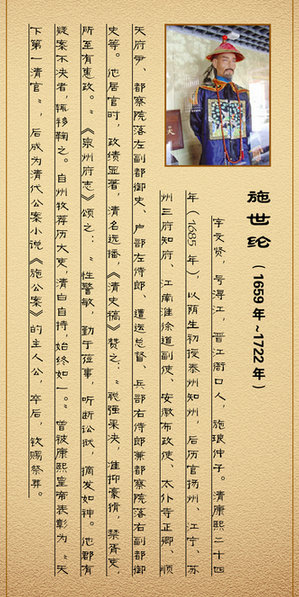 施世纶
（1659年~1722年）
字文贤，号浔江，晋江衙口人，施琅仲子。清康熙二十四
年（1685年），以荫生初授泰州知州，后历官扬州、江宁、苏
州三府知府、江南淮徐道副使、安徽布政使、太仆寺正卿、顺
天府尹、都察院落左副都御史、户部左侍郎、遭运总督、兵部右侍郎兼都察院落右副都御
史等。他居官时，政绩显著，清名远播，《清史稿》赞之：“聪强果决，摧抑豪猾，禁胥吏，
所至有惠政。”《泉州府志》颂之：“性警敏，勤于莅事，听断讼狱，摘发如神。他郡有
疑案不决者，辄移鞠之。自州牧荐历大吏，清白自持，始终如一。”曾被康熙皇帝表彰为：“天
下第一清官”，后成为清代公案小说《施公案》的主人公，卒后，钦赐祭葬。